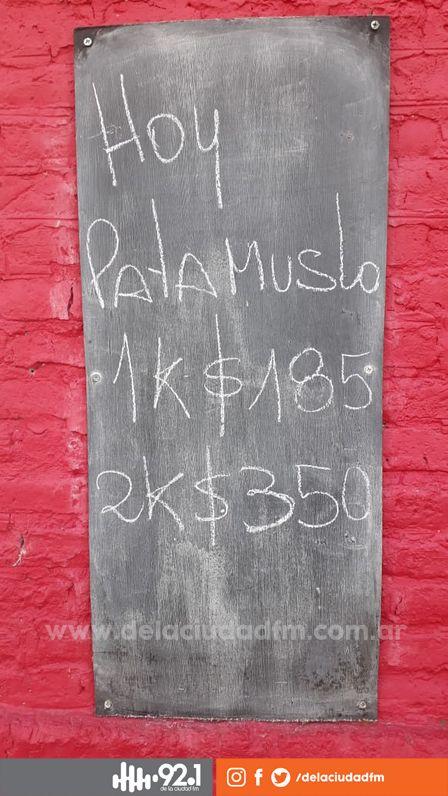 Hoy
PATAMUSLO
1K $185
2K $350
www.delaciudadfm.com.ar
92.1
de la ciudad fm
/delaciudadfm